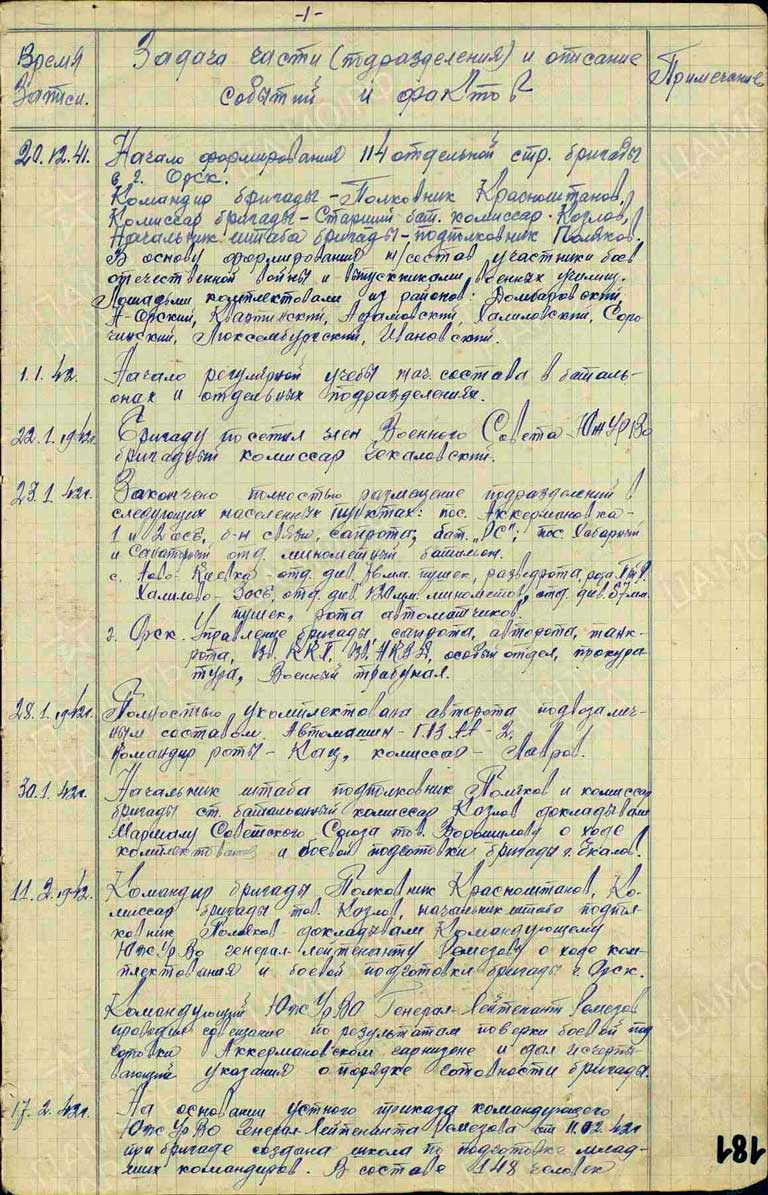 -1-
Время Записи.
Задача части (подразделения) и описание
событий и фактов
Примечание
20.12.41. Начало формирования 114 отдельной стр. бригады
в г. Орск.
Командир бригады - Полковник Красноштанов,
Комиссар бригады - Старший бат. комиссар Козлов,
Начальник штаба бригады - подполковник Поляков.
В основу формирования н/состав участники боев
отечественной войны и выпускниками военных училищ.
Лошадьми комплектовали из районов: Домбаровский
Н-Орский, Кваркинский, Адамовский, Халиловский, Соро-
чинский, Люксембургский, Ивановский.
1.1.42. Начало регулярной учебы нач. состава в баталь-
онах и отдельных подразделениях.
22.1.1942г. Бригаду посетил член Военного Совета ЮжУрВО
бригадный комиссар
23.1.42г. Закончено полностью размещение подразделений в
следующих населенных пунктах: пос. Аккермановка -
1 и 2 осб, б-н связи, санрота, бат. "РС", пос. Хабарный
и отд. минометный батальон.
с. Ново-Киевка - отд. див. 76мм. пушек, разведрота, рота П.Т.Р.
Халилово - 3осб, отд. див. 120мм. минометов, отд. див. 57мм.
пушек, рота автоматчиков.
г. Орск. Управление бригады, санрота, авторота, танк-
рота, НКВД, особый отдел, прокура-
тура, Военный трибунал.
28.1.1942г. Полностью укомплектована авторота подвоза лич-
ным составом. Автомашин - ГАЗ АА - 2.
Командир роты - Кац, комиссар - Лавров.
30.1.42г. Начальник штаба подполковник Поляков и комиссар
бригады ст. батальонный комиссар Козлов докладывали
Маршалу Советского Союза тов. Ворошилову о ходе
комплектования и боевой подготовки бригады г. Чкалов.
11.2.1942. Командир бригады Полковник Красноштанов, Ко-
миссар бригады тов. Козлов, начальник штаба подпол-
ковник Поляков - докладывали Командующему
ЮжУрВО генерал-лейтенанту Ремезову о ходе ком-
плектования и боевой подготовки бригады г. Орск.
Командующий ЮжУрВО Генерал-Лейтенант Ремезов
проводил совещание по результатам поверки боевой под-
готовки в Аккермановском гарнизоне и дал исчерпы-
вающий указания о порядке готовности бригады.
17.2.42г. На основании устного приказа командующего
ЮжУрВО Генерал-Лейтенанта Ремезова от 11.02.42г
при бригаде создана школа по подготовке млад-
ших командиров. В составе 148 человек
181